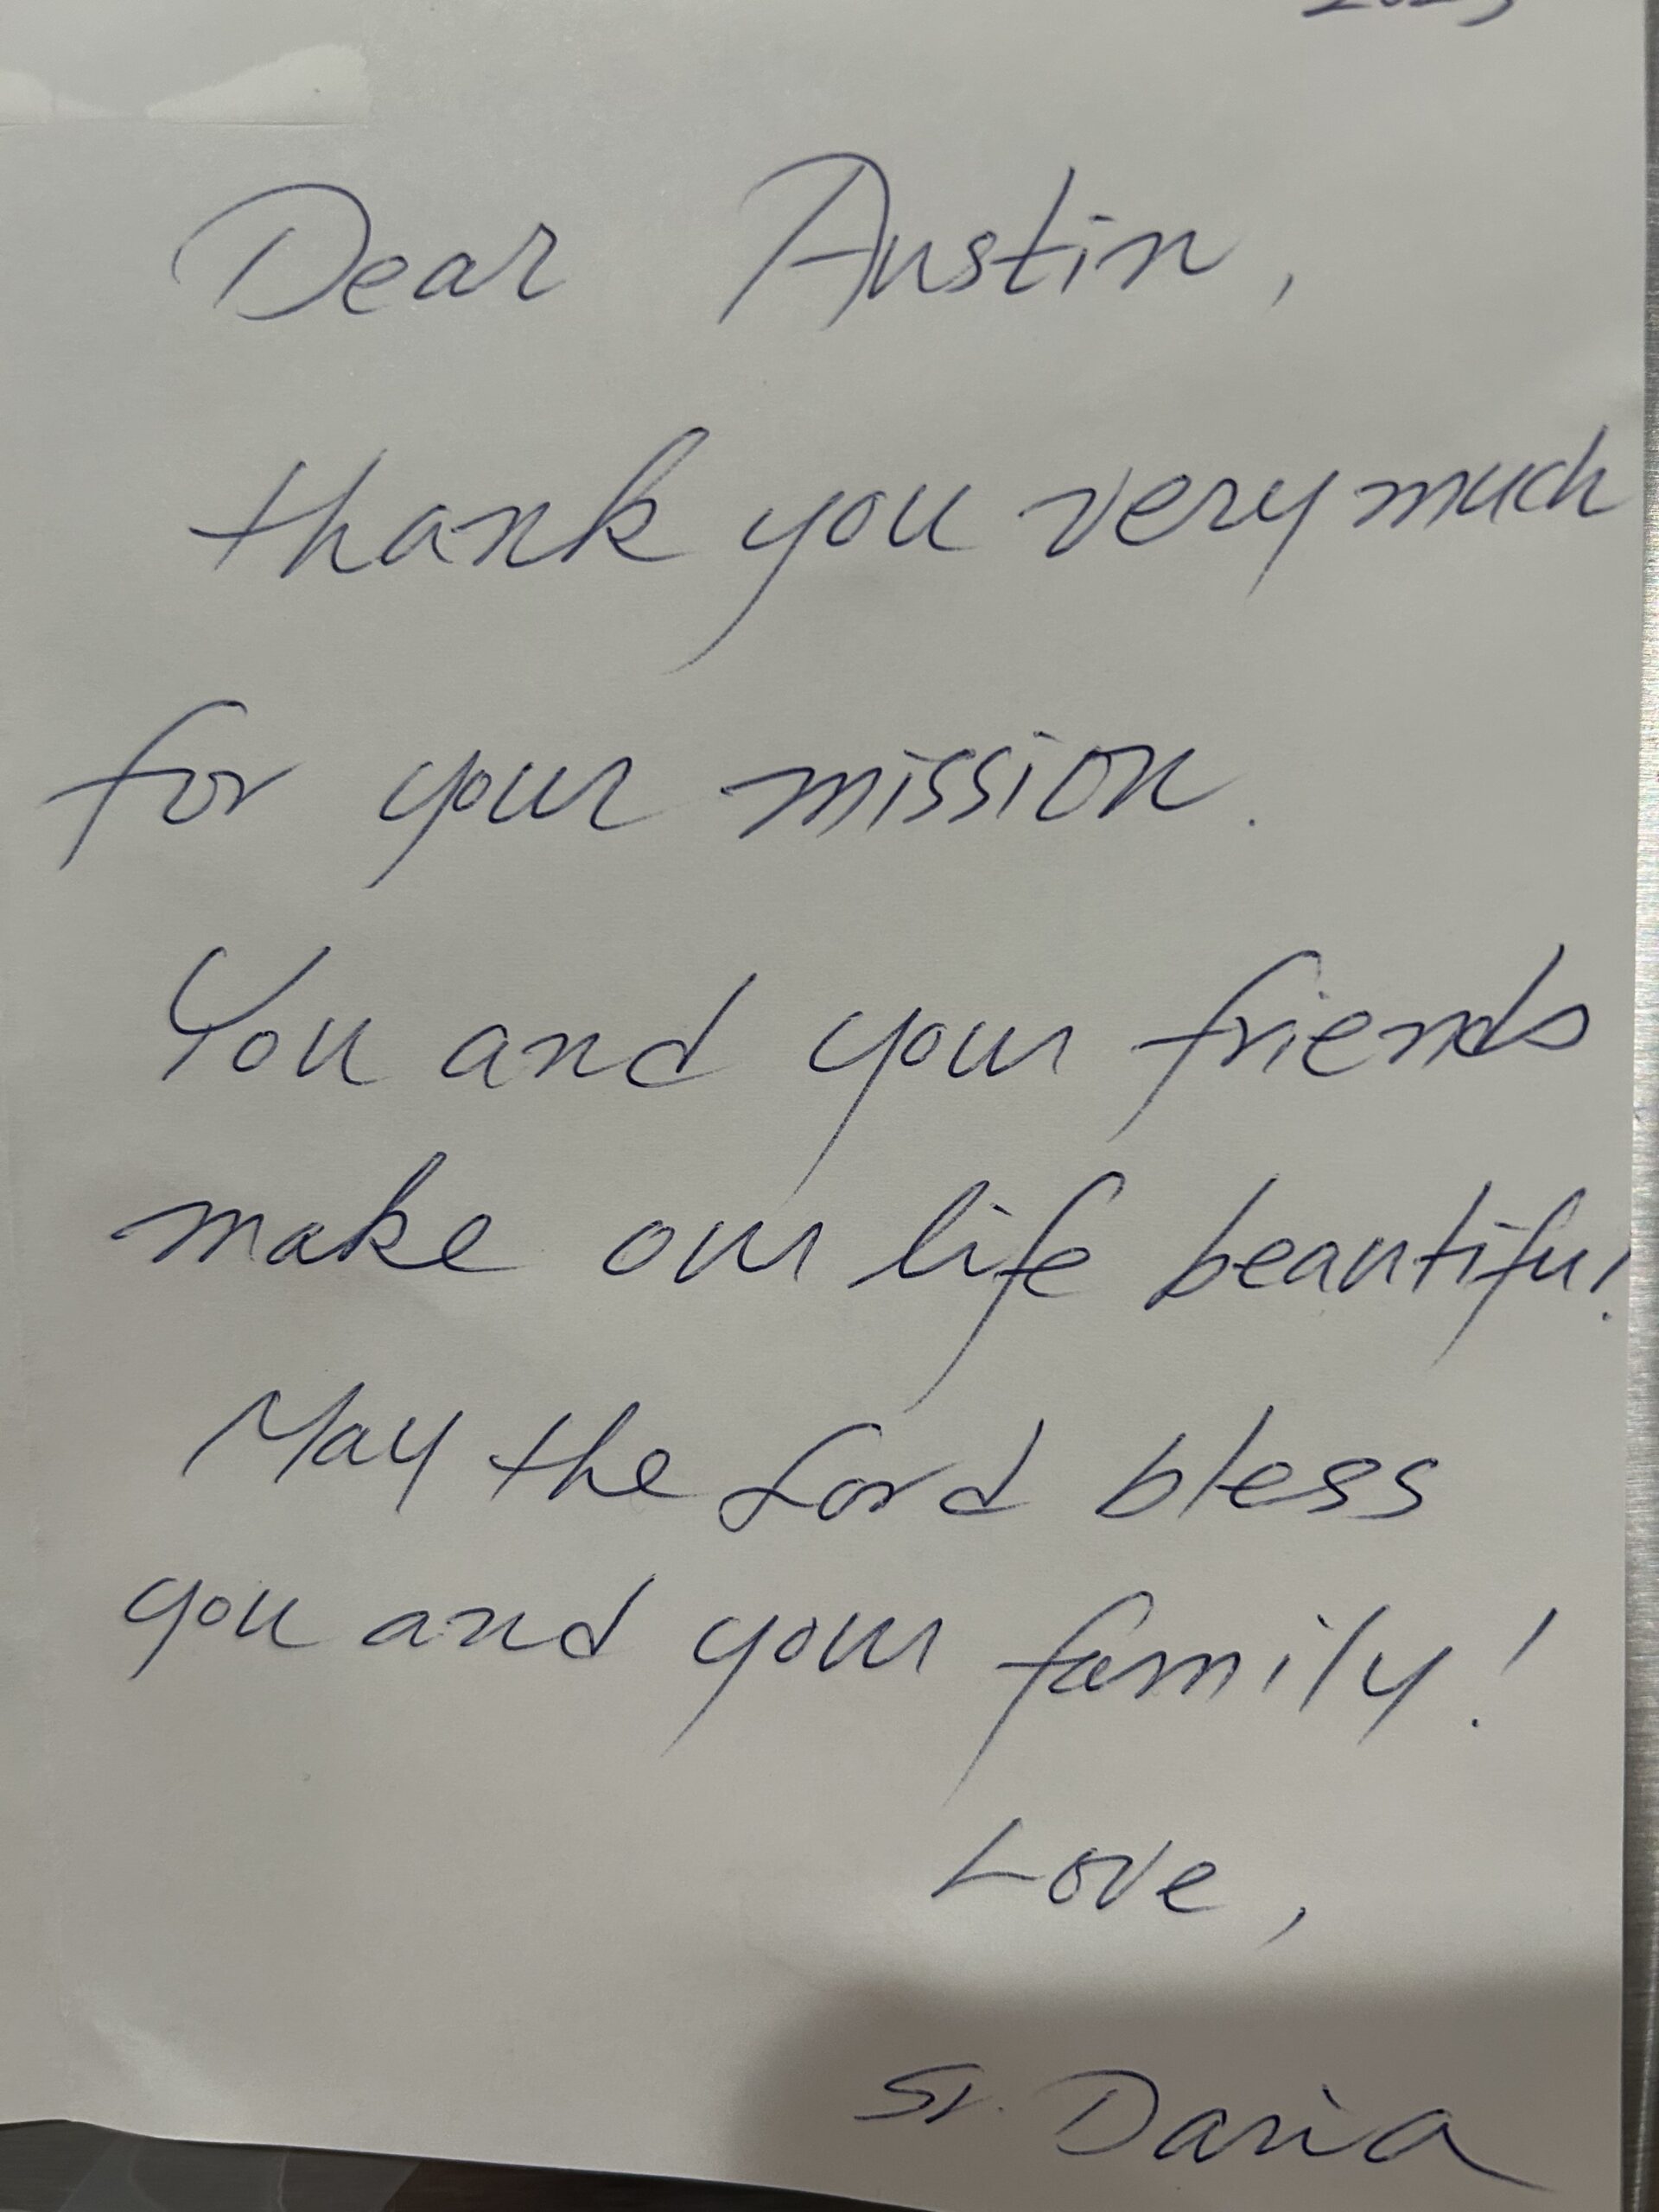 Dear Austin,
thank you very much
for your mission.
You and your friends
make our life beautiful!
May the Lord bless
you and your family!
Love,
Sr. Daria